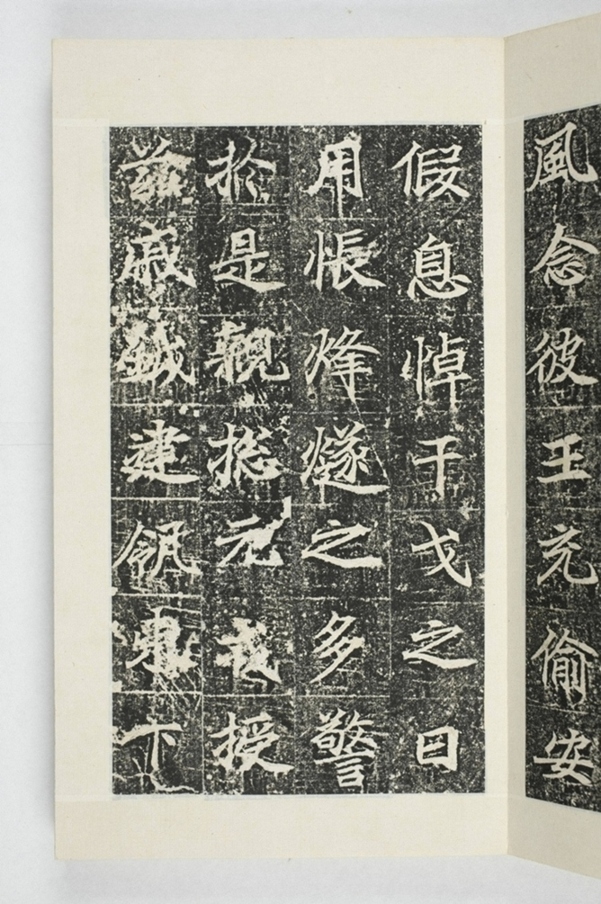 風念彼王充偷安
假息悼干戈之日
用悵烽燧之多警
於是親揔元戎授
茲戚鉞建瓴東下